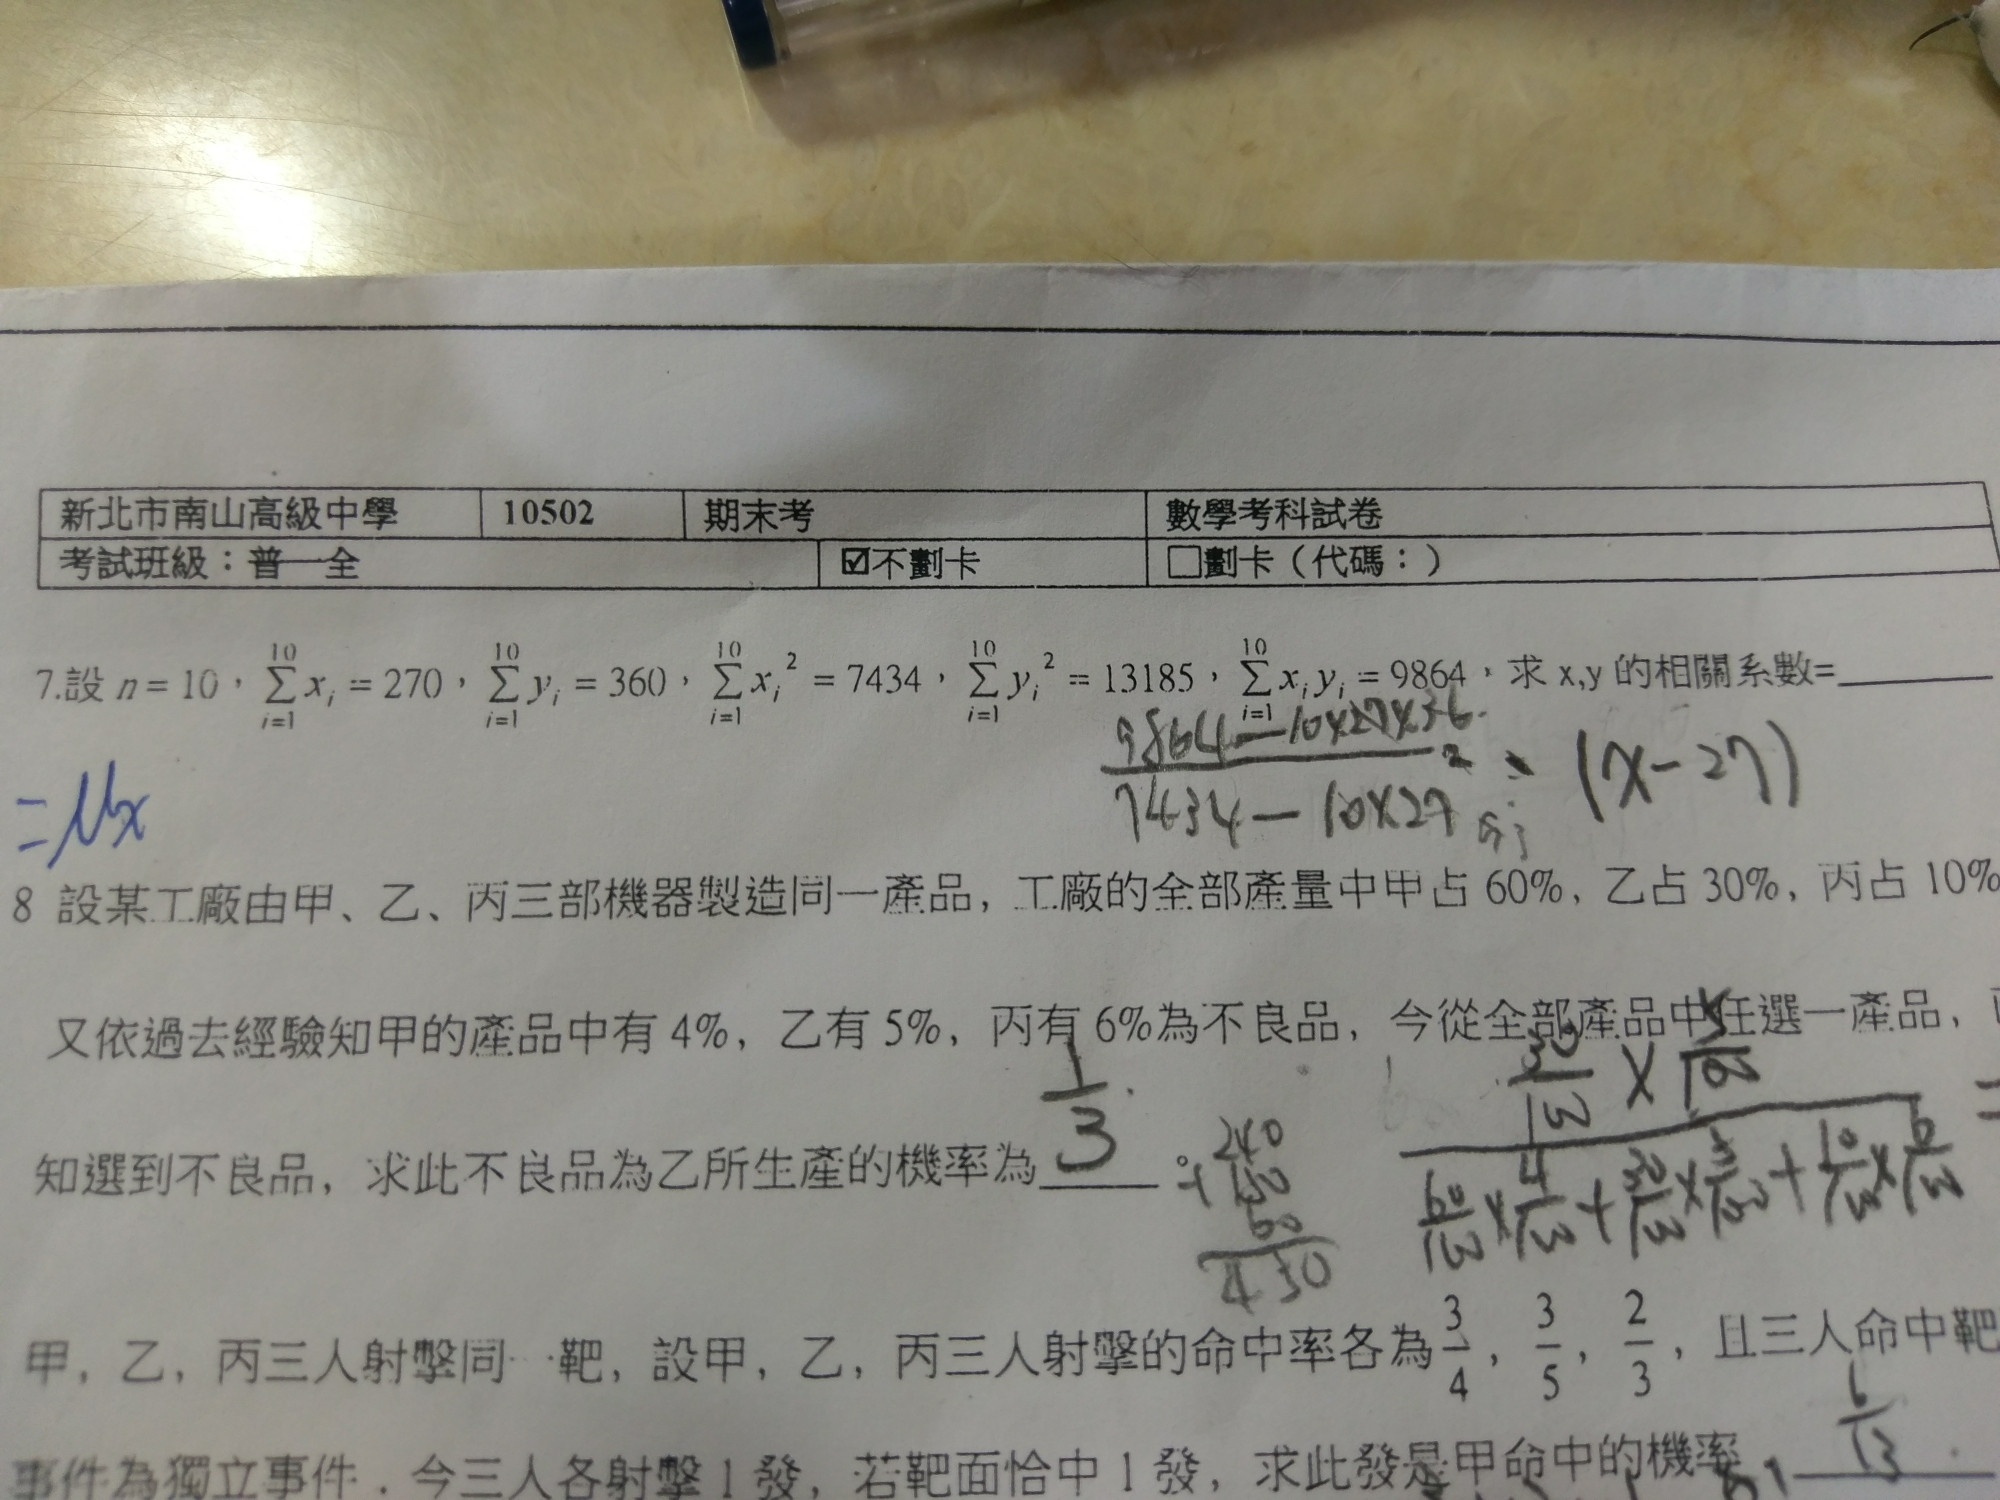 新北市南山高級中學 10502 期末考 數學考科試卷
考試班級：普一全 ☑不劃卡 □劃卡（代碼：）
7.設 n = 10，\sum_{i=1}^{10} x_i = 270，\sum_{i=1}^{10} y_i = 360，\sum_{i=1}^{10} x_i^2 = 7434，\sum_{i=1}^{10} y_i^2 = 13185，\sum_{i=1}^{10} x_i y_i = 9864，求 x,y 的相關系數=______
9864-10×27×36
7434-10×27² (x-27)
=μx
8 設某工廠由甲、乙、丙三部機器製造同一產品，工廠的全部產量中甲占 60%，乙占 30%，丙占 10%
又依過去經驗知甲的產品中有 4%，乙有 5%，丙有 6%為不良品，今從全部產品中任選一產品，
知選到不良品，求此不良品為乙所生產的機率為 1/3
240
+150
60
450
甲，乙，丙三人射擊同一靶，設甲，乙，丙三人射擊的命中率各為 3/4，3/5，2/3，且三人命中靶
事件為獨立事件．今三人各射擊 1 發，若靶面恰中 1 發，求此發是甲命中的機率 6/13